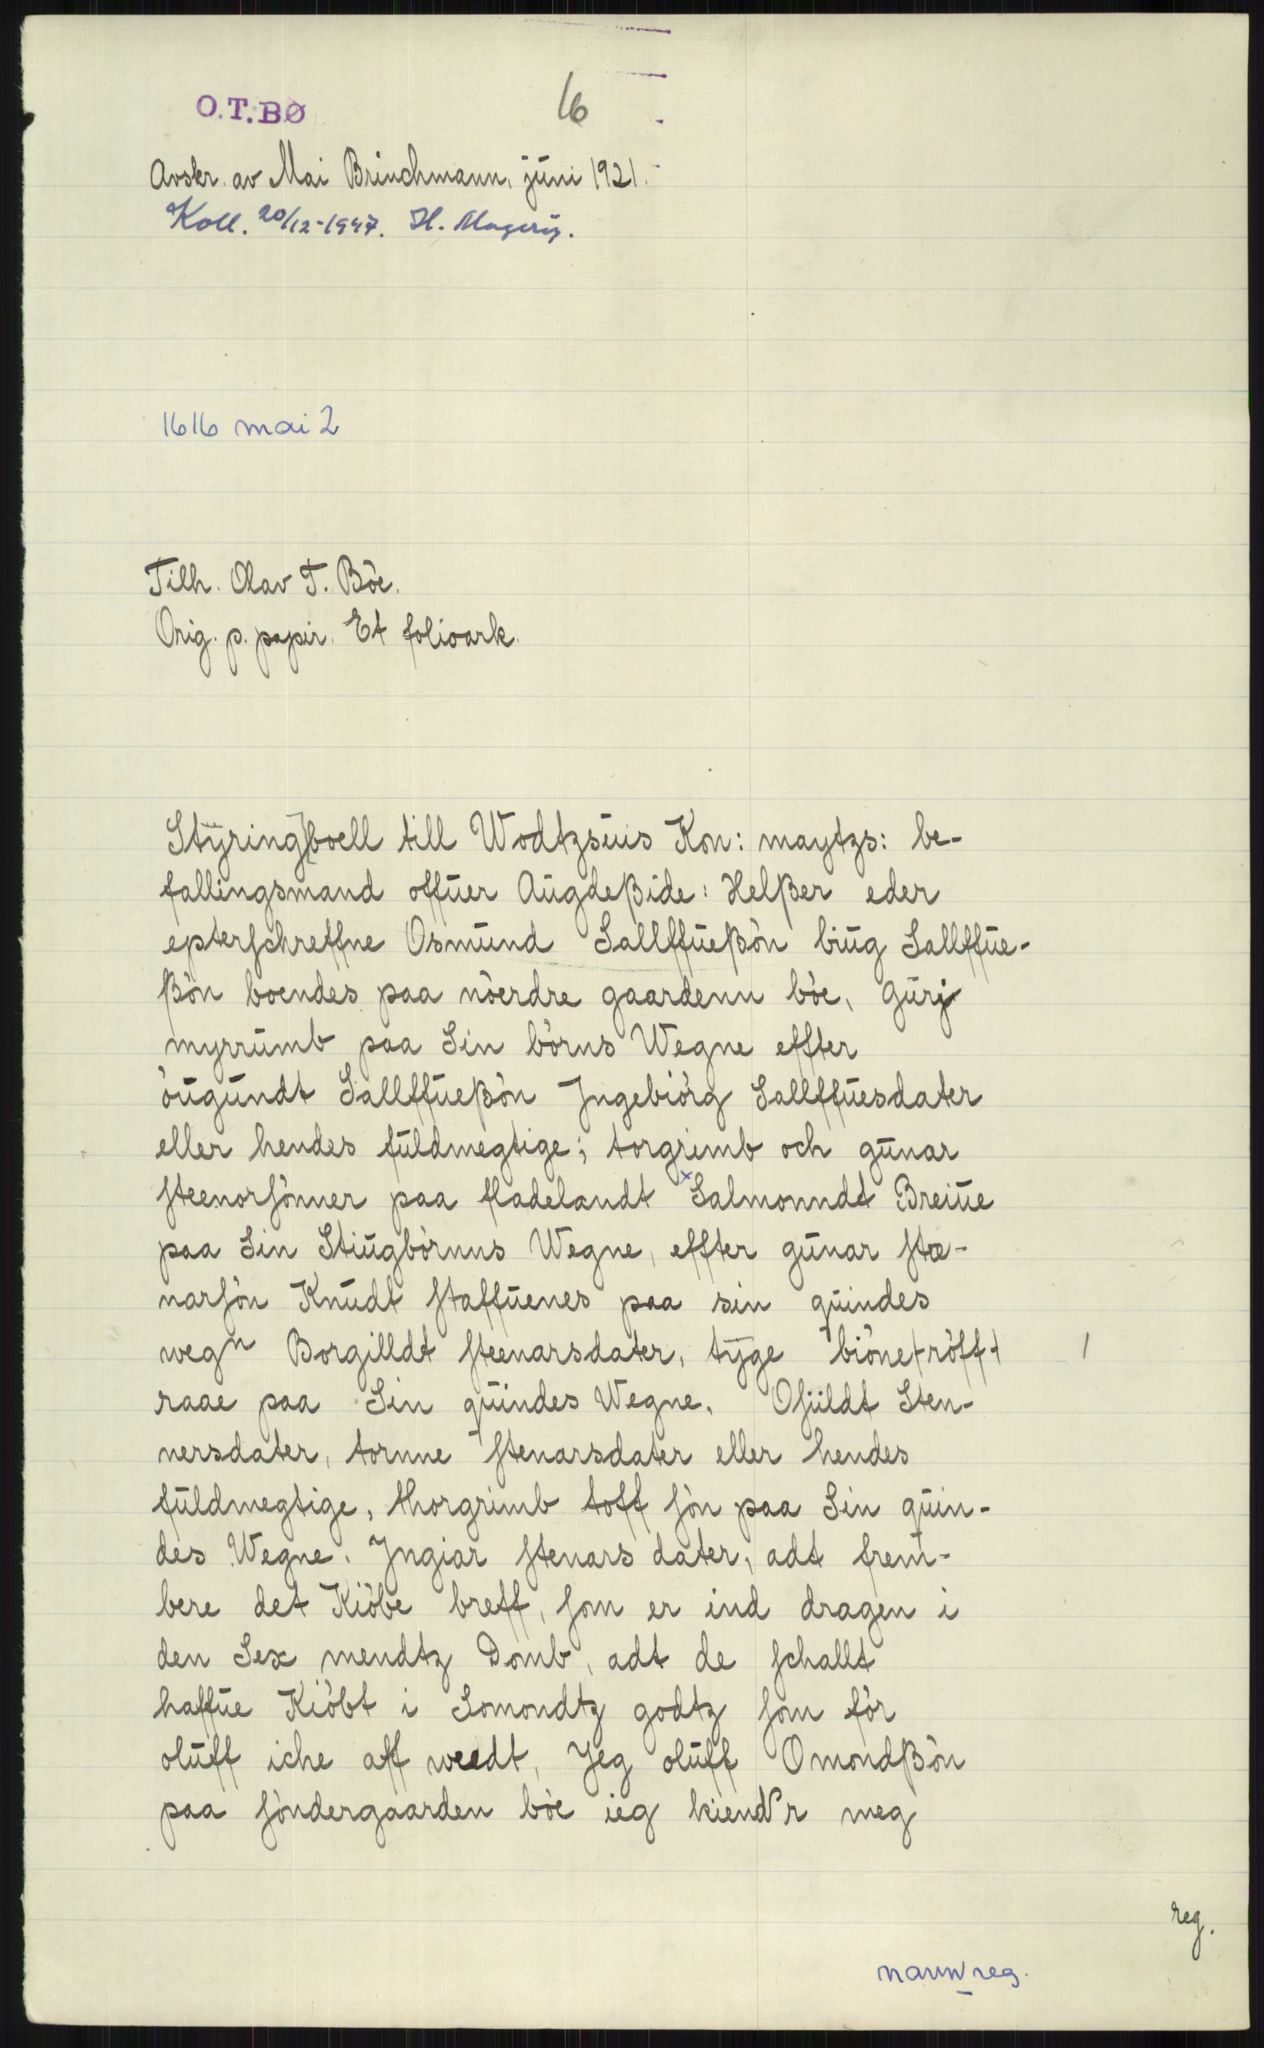 O.T.BØ
16
Avskr. av Mai Brinchmann, juni 1921.
Koll. 20/12-1947. H. Magerøy.
1616 mai 2
Tilh. Olav T. Böe.
Orig. p. papir. Et folioark.
Styringboell till Wodtzsens Kon: maytzs: be-
fallingsmand offuer Augdeßide: Helßer eder
epterschreffne Osmund Sallffueßön biug Sallffue-
ßön boendes paa nöerdre gaardenn böe, gurj
myrrumb paa Sin börns Wegne effter
öugundt Sallffueßön Jngebiörg Sallffuesdater
eller hendes fuldmegtige; torgrimb och gunar
steenorsönner paa fladelandt Salmonndt Breiue
paa Sin Stiugbörnns Wegne, effter gunar stæ-
narsön Knudt staffuenes paa sin quindes
wegn Borgilldt steenarsdater, tyge biönetröfft 1
raae paa Sin quindes Wegne. Osüldt Sten-
nersdater, tornne stenarsdater eller hendes
fuldmegtige, thorgrimb toff sön paa Sin quin-
des Wegne. Jngiar stenars dater, adt frem-
bere det Kiöbe breff, som er ind dragen i
den Sex mendtz Domb, adt de schallt
haffue Kiöbt i Somondtz godtz som för
oluff iche aff weedt, Jeg oluff Omondßön
paa söndergaarden böe ieg kiender meg
reg.
navnreg.